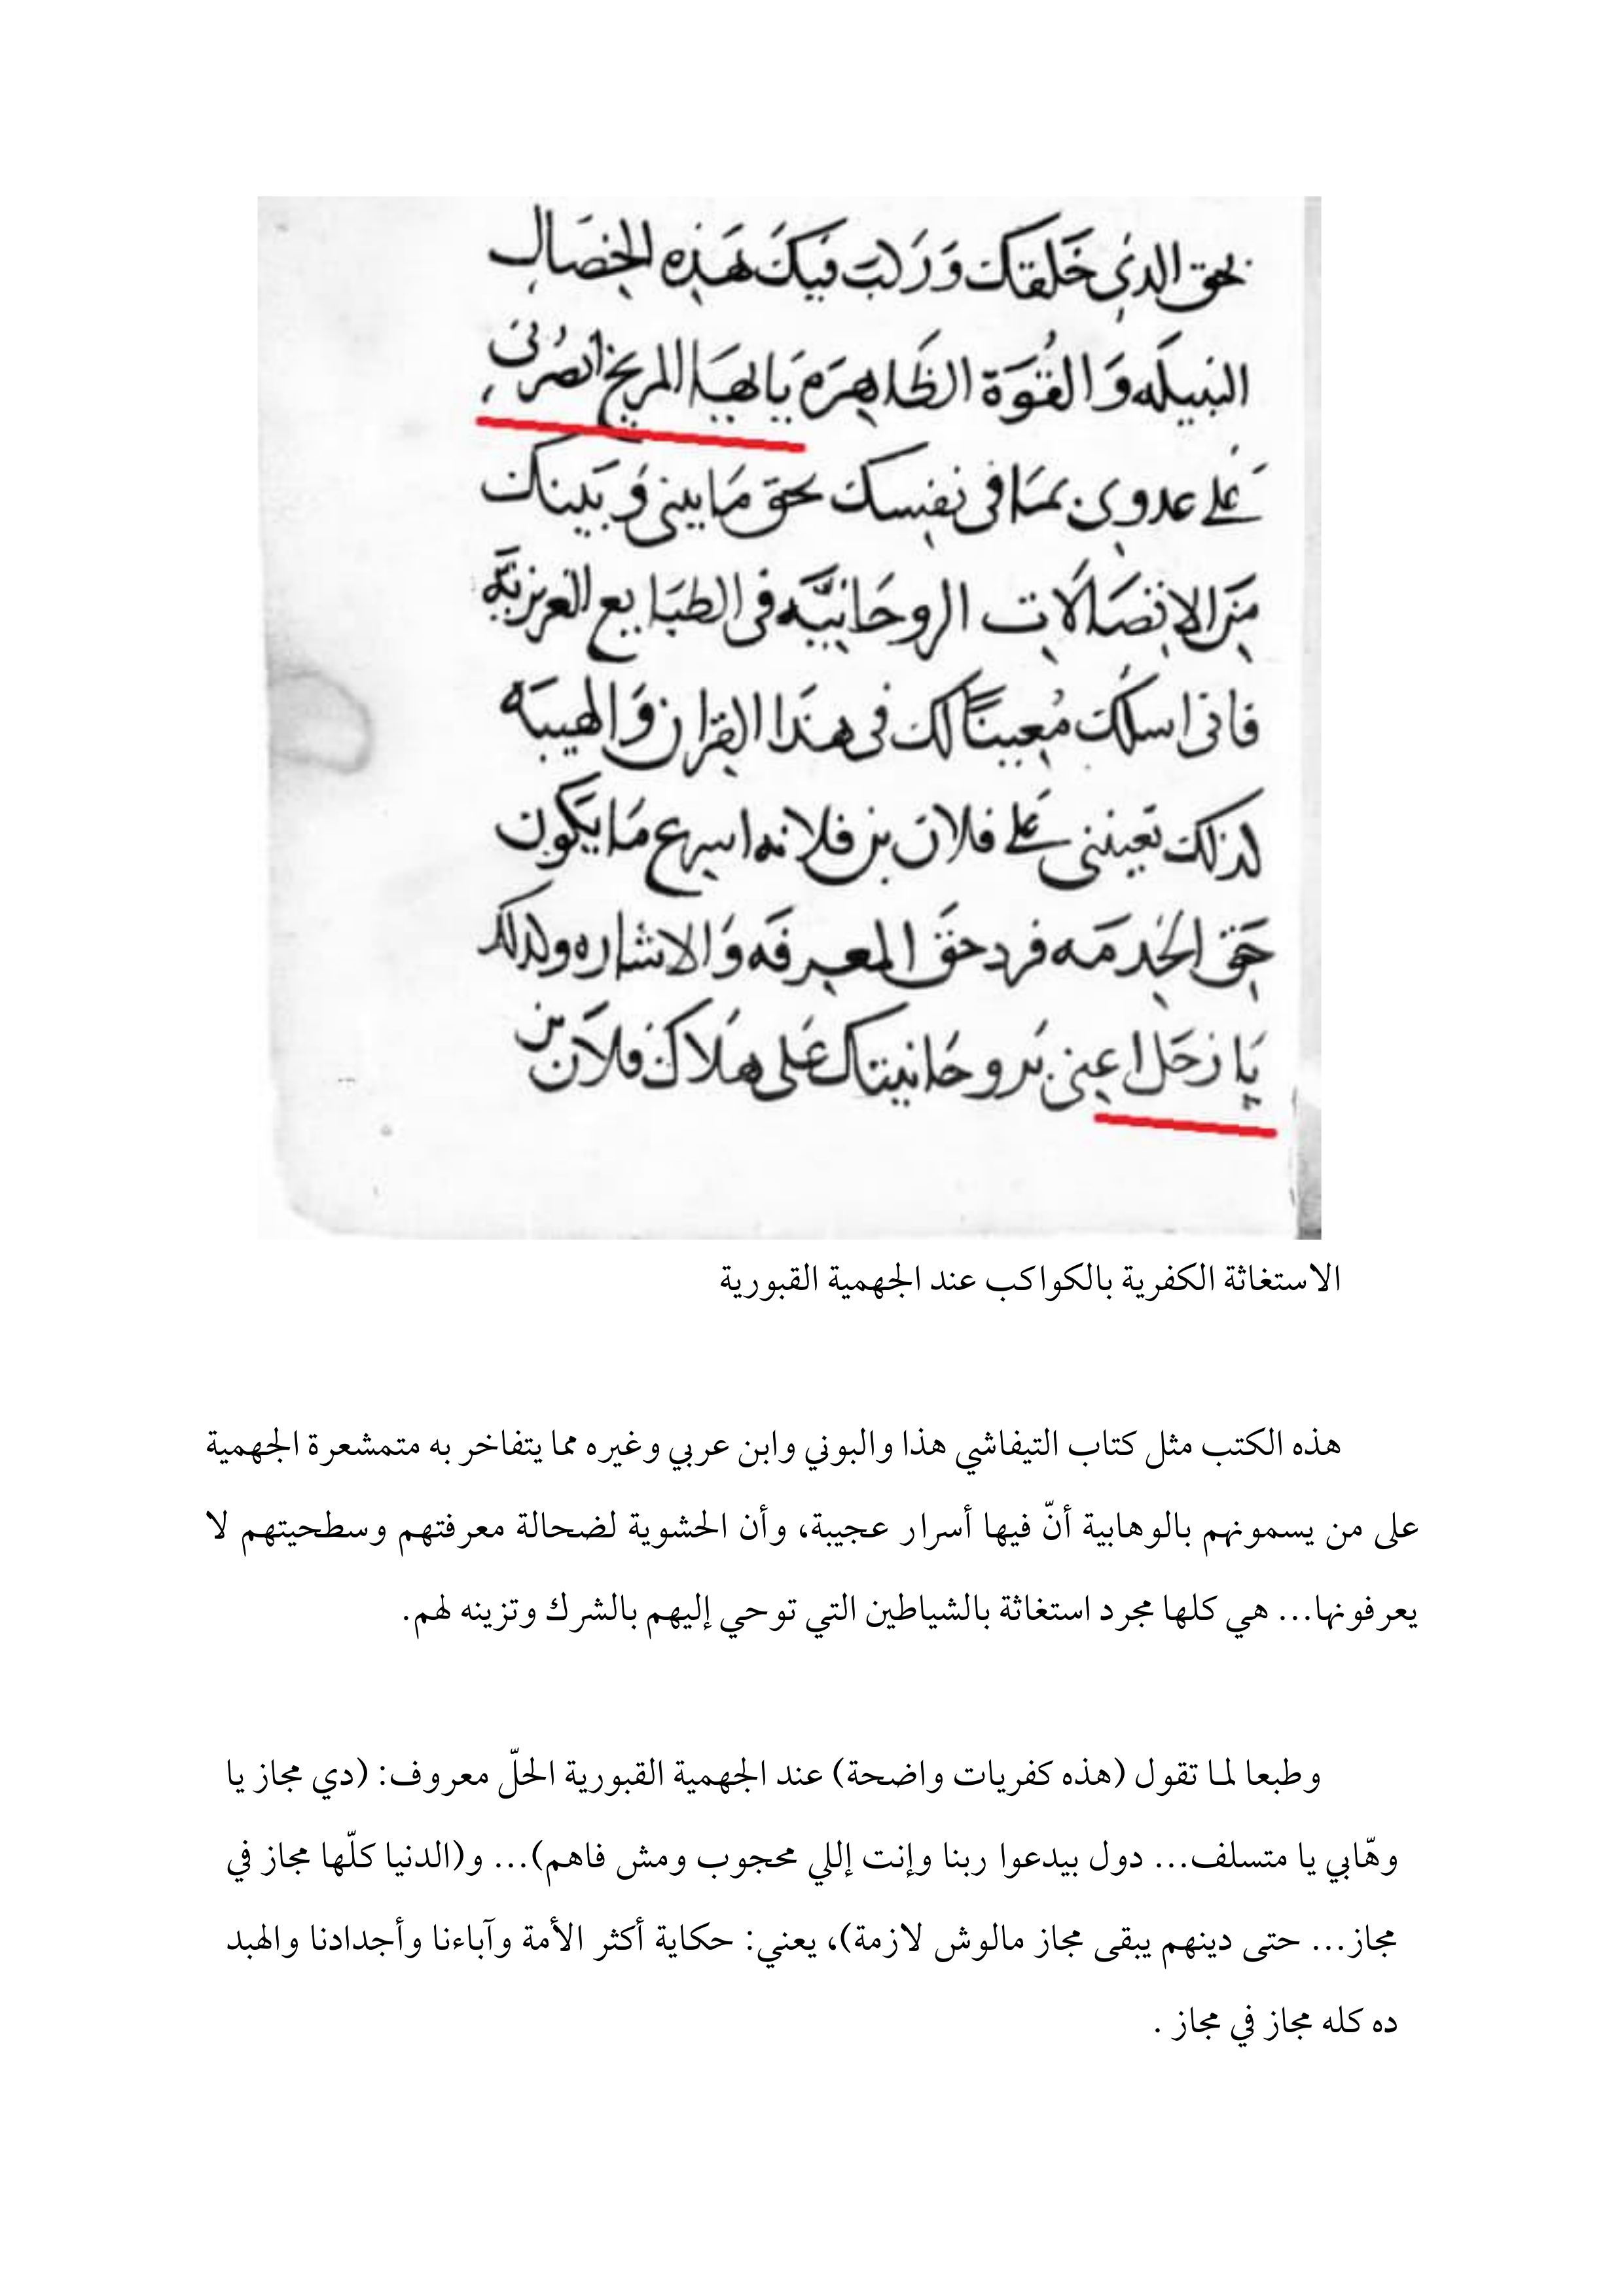 بحق الذي خَلقتك وَرَكبَ فيكَ هَذِه الخِصَال
النبيلَه وَالقُوَة الظَاهِرَه يَا ايهَا المريخ انصُرني
عَلى عدوي بمَا في نفسِك بحق مَا بيني وَبَينك
مِنَ الاِتصَالَات الروحَانيَّه في الطبَايع الغريزيَّه
فاني اسلُك مُعِينًا لك في هذا القِران وَالهيبَه
لذلك تعينني عَلى فلان بن فلانه اسرع مَا يَكُون
حَق الخدمَه فرد حقَ المعرفَه وَالاشاره ولذلك
يَا زحَل اعِني بروحَانيتك عَلى هَلاك فلَان بن
الاستغاثة الكفرية بالكواكب عند الجهمية القبورية
هذه الكتب مثل كتاب التيفاشي هذا والبوني وابن عربي وغيره مما يتفاخر به متمشعرة الجهمية
على من يسمونهم بالوهابية أنّ فيها أسرار عجيبة، وأن الحشوية لضحالة معرفتهم وسطحيتهم لا
يعرفونها... هي كلها مجرد استغاثة بالشياطين التي توحي إليهم بالشرك وتزينه لهم.
وطبعا لما تقول (هذه كفريات واضحة) عند الجهمية القبورية الحلّ معروف: (دي مجاز يا
وهّابي يا متسلف... دول بيدعوا ربنا وإنت إللي محجوب ومش فاهم)... و(الدنيا كلّها مجاز في
مجاز... حتى دينهم يبقى مجاز مالوش لازمة)، يعني: حكاية أكثر الأمة وآباءنا وأجدادنا والهبد
ده كله مجاز في مجاز .